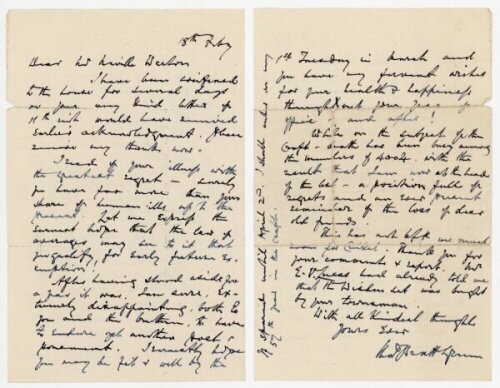 18th Feby
Dear Mr Neville Weston
I have been confined
to the house for several days
or your very kind letter of
11th inst would have received
earlier acknowledgment. Please
receive my thanks now.
I read of your illness with
the greatest regret - surely
you have far more than your
share of human ills up to the
present. Let me express the
earnest hope that the law of
averages may see to it that
you qualify for early future ex-
emption!
After having stood aside for
a year it was, I am sure, ex-
tremely disappointing, both to
you and the brethren, to have
to endure yet another post-
ponement. I earnestly hope
you may be fit & well by the
1st Tuesday in March and
you have my fervent wishes
for your health & happiness
throughout your year of
office - and after!
While on the subject of the
Craft - death has been busy among
the members of 4024 with the
result that I am now at the head
of the list - a position full of
regrets and an ever present
reminder of the loss of dear
old friends.
This has not left me much
room for Cricket. Thank you for
your comments & report. Mr
E.V. Lucas had already told me
that the Wisden set was bought
by your townsman.
With all kindest thoughts
Yours Sincerely
If spared until April 2nd, I shall enter on my
57th year in the Craft.